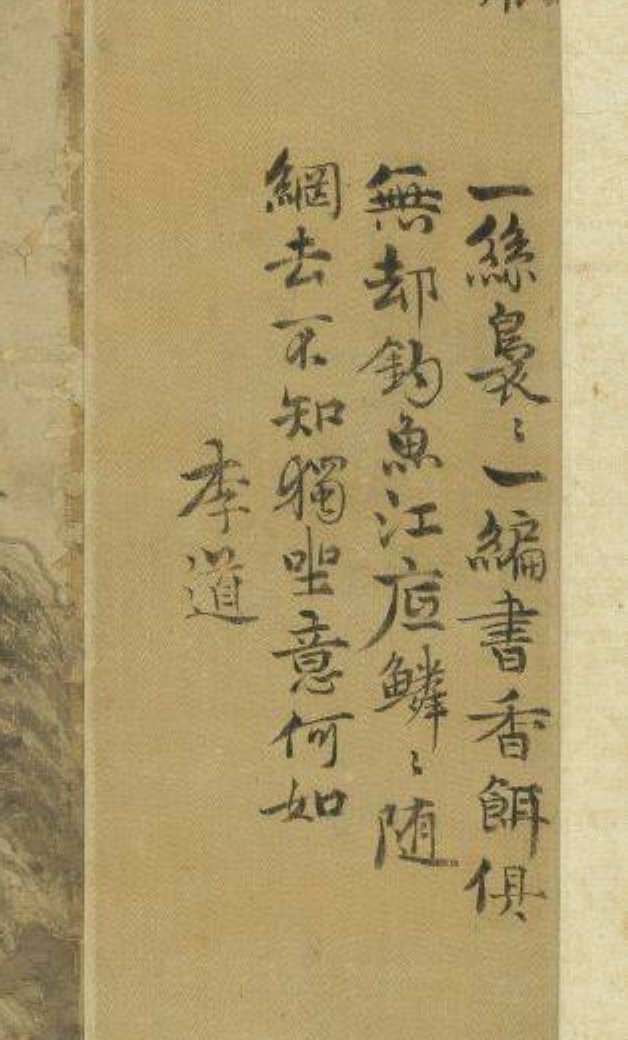 一絲裊〻一編書香餌俱
無却釣魚江底鱗〻随
網去不知獨坐意何如
李道